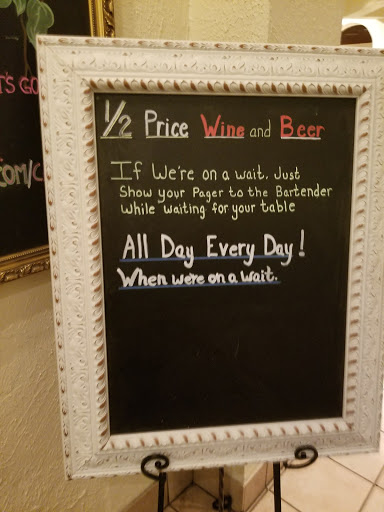 1/2 Price Wine and Beer
If We're on a wait. Just
Show your Pager to the Bartender
While waiting for your table
All Day Every Day!
When we're on a wait.